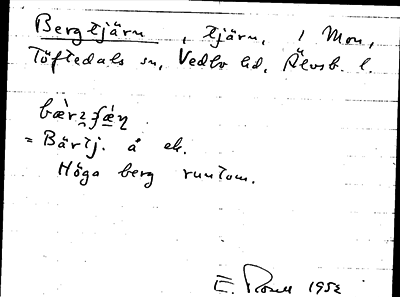 Bergtjärn, tjärn, i Mon,
Töftedals sn, Vedbo hd, Älvsb. l.
bæ̀rʐʃǽṇ
= Bärtj. å ek.
Höga berg runtom.
E. Rosell 1952